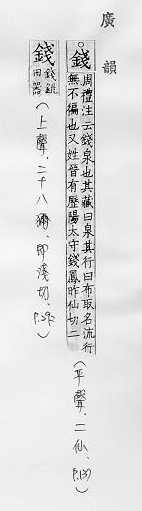 廣韻
錢 周禮注云錢泉也其藏曰泉其行曰布取名流行
無不徧也又姓晉有歷陽太守錢鳳昨仙切二
(平聲、二仙、P.137)
錢 錢銚
田器
(上聲、二十八獮、即淺切、P.292)